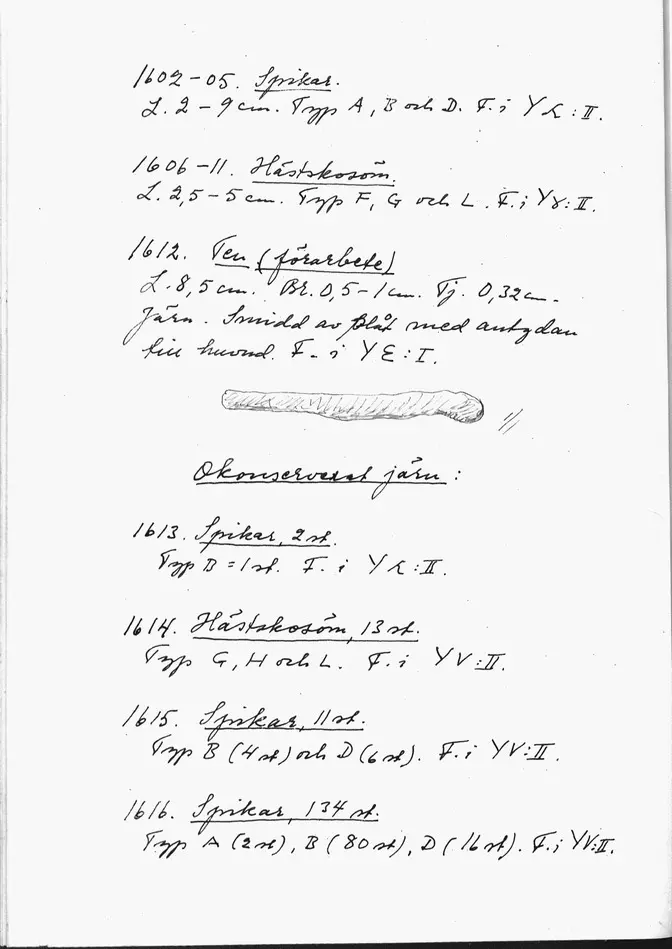 1602-05. Spikar.
L. 2-9 cm. Typ A, B och D. F. i Y Z : II.
1606-11. Hästskosöm.
L. 2,5-5 cm. Typ F, G och L. F. i Y : II.
1612. Ten (förarbete)
L. 8,5 cm. Br. 0,5-1 cm. Tj. 0,32 cm.
Järn. Smidd av plåt med antydan
till huvud. F. i Y E : I.
1/1
Okonserverat järn :
1613. Spikar, 2 st.
Typ B = 1 st. F. i Y : II.
1614. Hästskosöm, 13 st.
Typ G, H och L. F. i YV : II.
1615. Spikar, 11 st.
Typ B (4 st) och D (6 st). F. i YV : II.
1616. Spikar, 134 st.
Typ A (2 st), B (80 st), D (16 st). F. i YV : II.